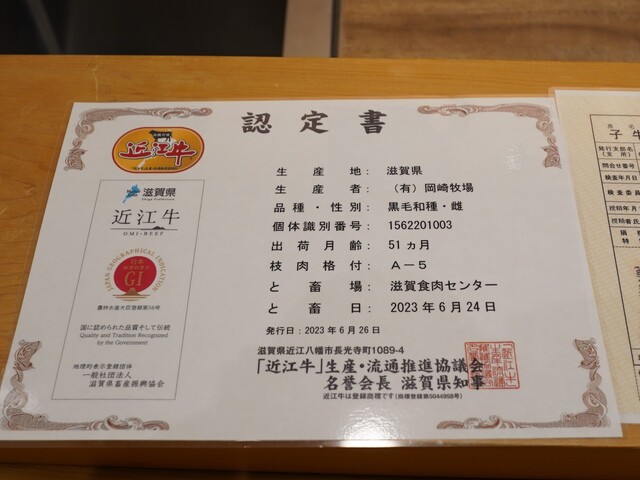 認定書
近江牛
滋賀県
Shiga Prefecture
近江牛
OMI-BEEF
JAPAN GEOGRAPHICAL INDICATION
日本
GI
農林水産大臣登録第56号
国に認められた品質そして伝統
Quality and Tradition Recognized
by the Government
地理的表示登録団体
一般社団法人
滋賀県畜産振興協会
生産地: 滋賀県
生産者: (有)岡崎牧場
品種・性別: 黒毛和種・雌
個体識別番号: 1562201003
出荷月齢: 51ヵ月
枝肉格付: A-5
と畜場: 滋賀食肉センター
と畜日: 2023年6月24日
発行日:2023年6月26日
滋賀県近江八幡市長光寺町1089-4
「近江牛」生産・流通推進協議会
名誉会長 滋賀県知事
近江牛は登録商標です(商標登録第5044958号)
子牛
発行支部名
(支所)
問合せ番号
検査年月日
検査委員
授精年月
授精者氏